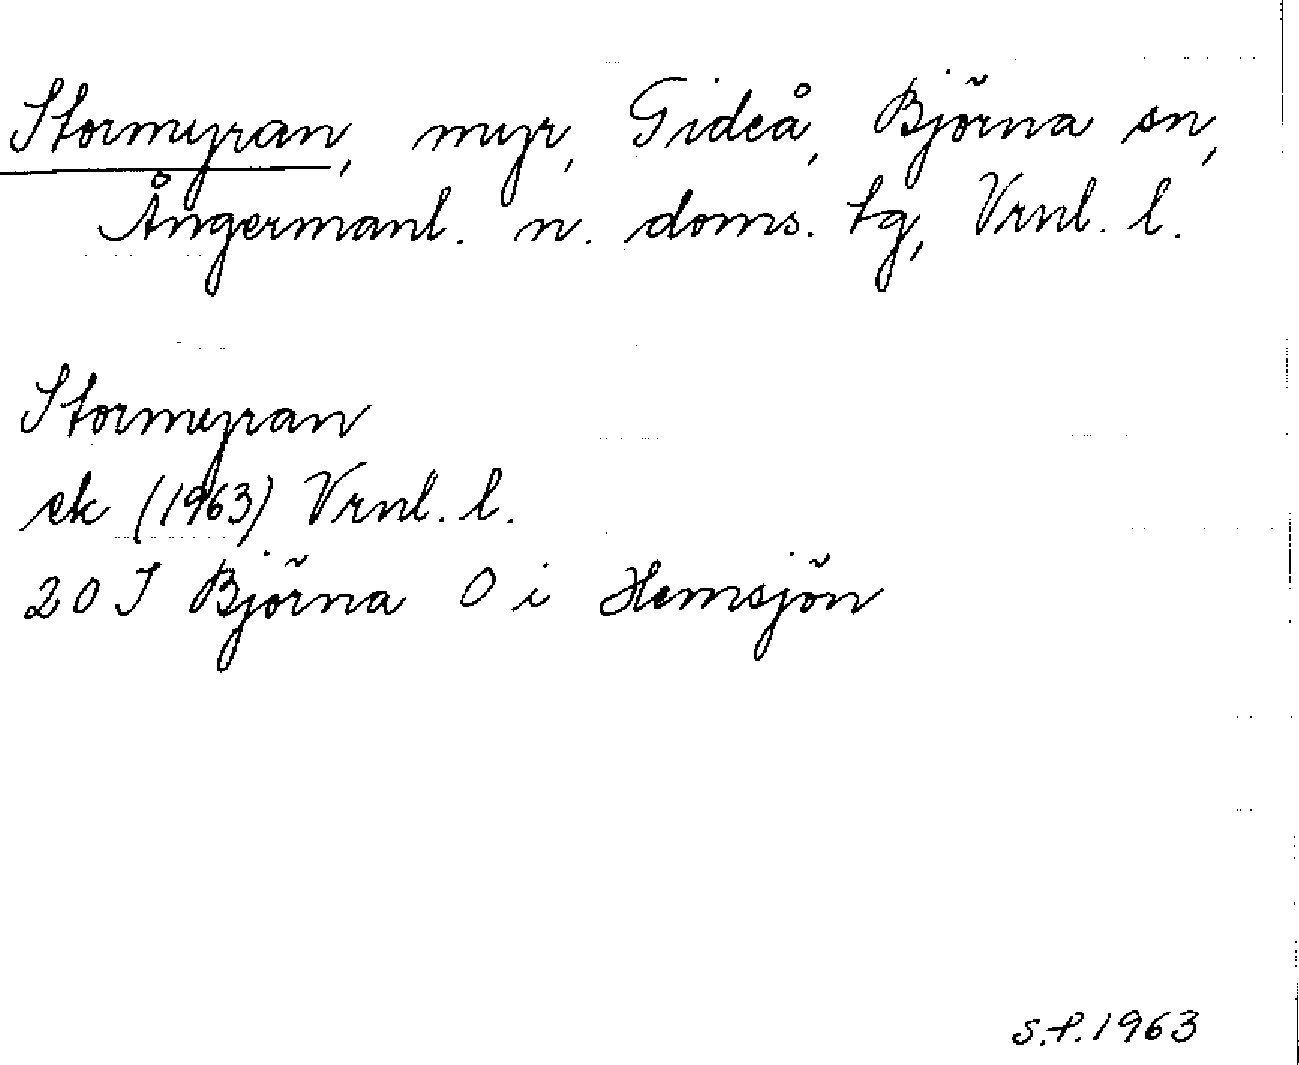 Stormyran, myr, Gideå, Björna sn,
Ångermanl. n. doms. tg, Vrnl. l.
Stormyran
ek (1963) Vrnl. l.
20 I Björna O i Hemsjön
S.P. 1963